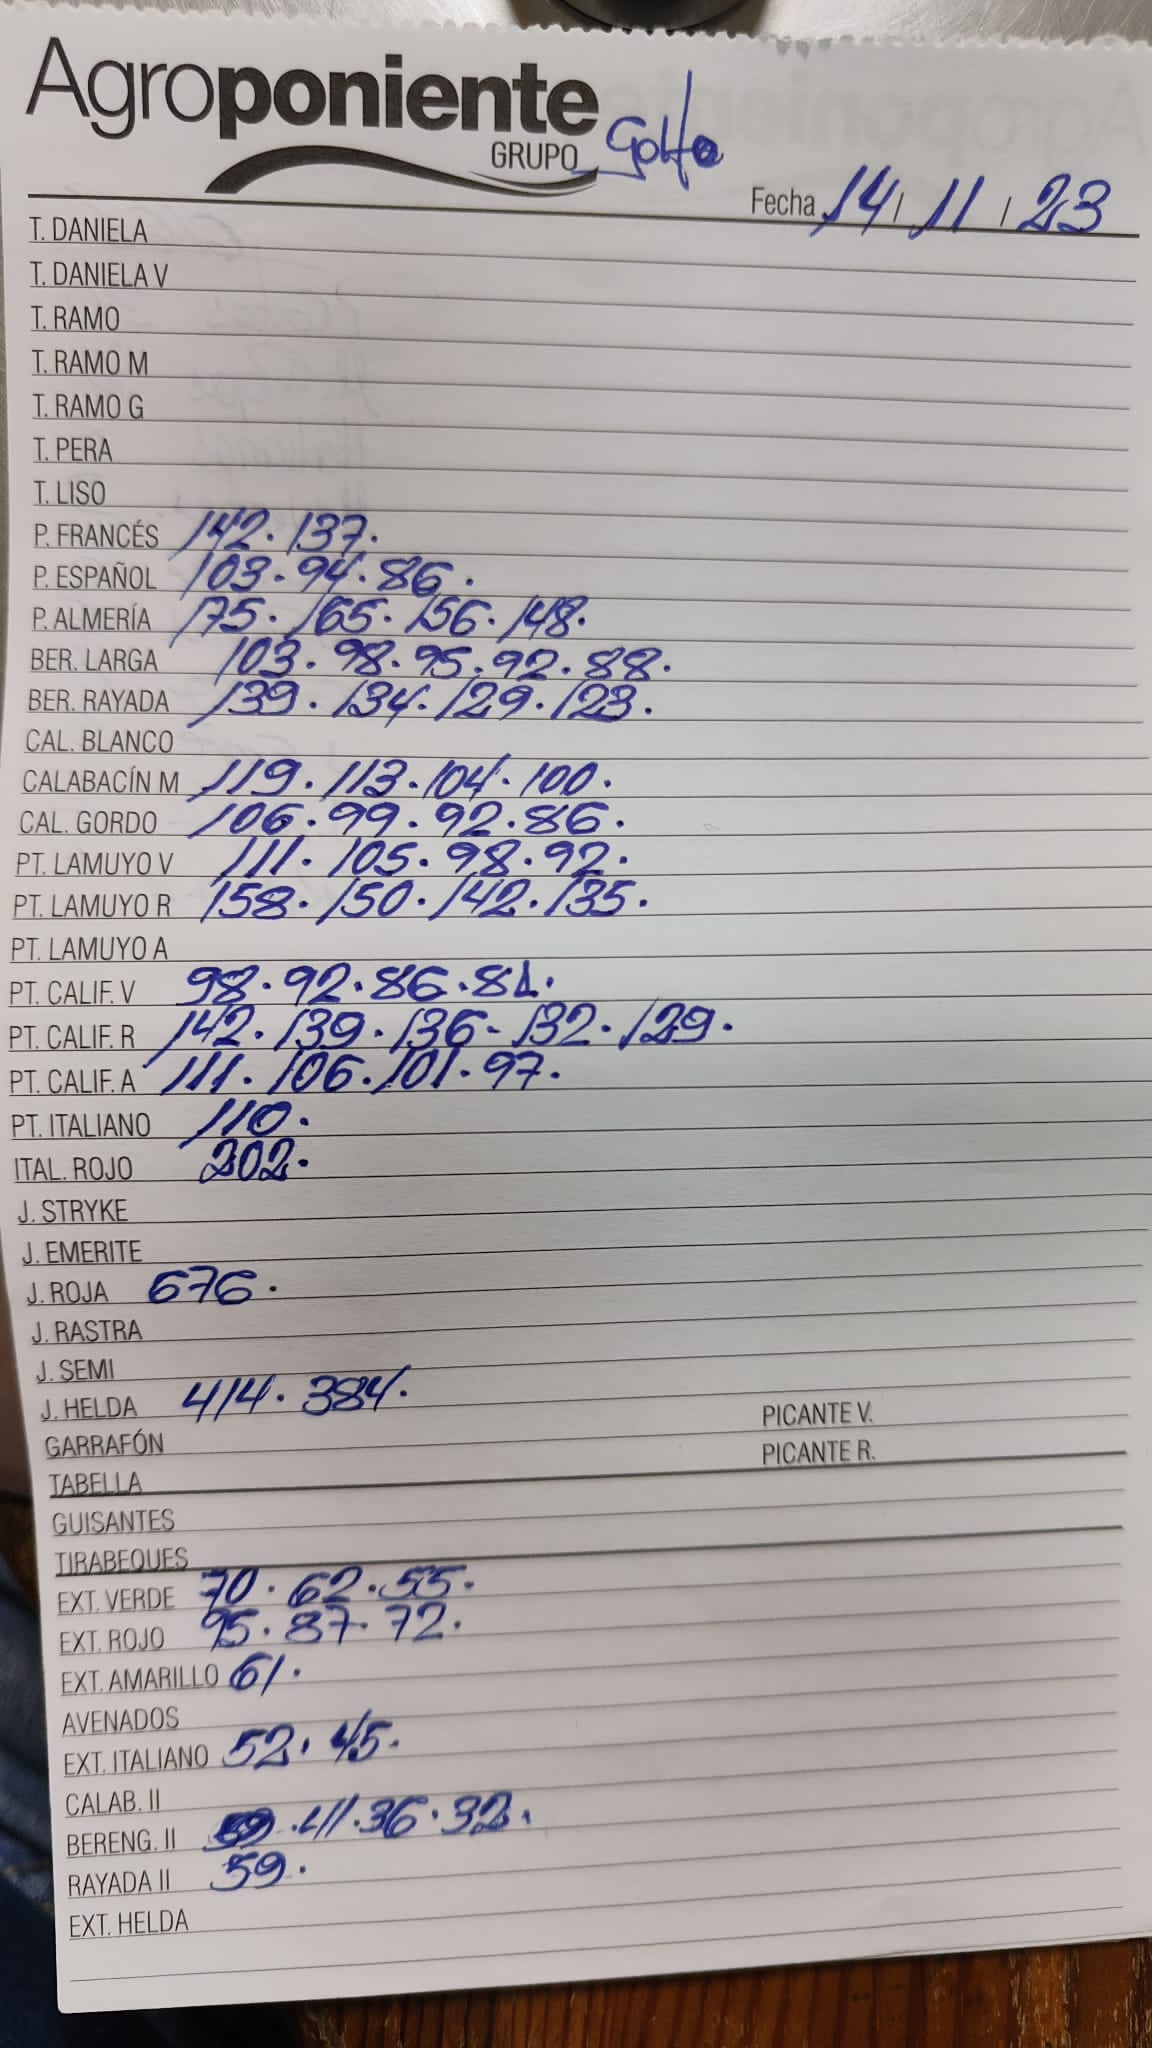 Agroponiente
GRUPO Golfo
Fecha 14 / 11 / 23
T. DANIELA
T. DANIELA V
T. RAMO
T. RAMO M
T. RAMO G
T. PERA
T. LISO
P. FRANCÉS 142. 137.
P. ESPAÑOL 103. 94. 86.
P. ALMERÍA 175. 165. 156. 148.
BER. LARGA 103. 98. 95. 92. 88.
BER. RAYADA 139. 134. 129. 123.
CAL. BLANCO
CALABACÍN M 119. 113. 104. 100.
CAL. GORDO 106. 99. 92. 86.
PT. LAMUYO V 111. 105. 98. 92.
PT. LAMUYO R 158. 150. 142. 135.
PT. LAMUYO A
PT. CALIF. V 98. 92. 86. 81.
PT. CALIF. R 142. 139. 136- 132. 129.
PT. CALIF. A 111. 106. 101. 97.
PT. ITALIANO 110.
ITAL. ROJO 202.
J. STRYKE
J. EMERITE
J. ROJA 676.
J. RASTRA
J. SEMI
J. HELDA 414. 384.
GARRAFÓN PICANTE V.
TABELLA PICANTE R.
GUISANTES
TIRABEQUES
EXT. VERDE 70. 62. 55.
EXT. ROJO 95. 87. 72.
EXT. AMARILLO 61.
AVENADOS
EXT. ITALIANO 52. 45.
CALAB. II
BERENG. II . 41. 36. 32.
RAYADA II 59.
EXT. HELDA